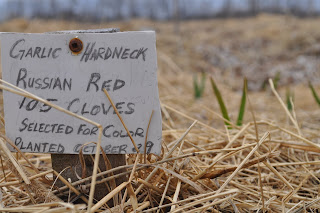 GARLIC - HARDNECK
RUSSIAN RED
105 CLOVES
SELECTED FOR COLOR
PLANTED OCTOBER 29